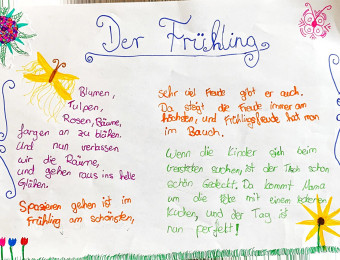 Der Frühling
Blumen,
Tulpen,
Rosen, Bäume,
fangen an zu blühen.
Und nun verlassen
wir die Räume,
und gehen raus ins helle
Glühen.
Spazieren gehen ist im
Frühling am schönsten,
sehr viel Freude gibt er auch.
Da steigt die Freude immer am
höchsten, und Frühlingsfreude hat man
im Bauch.
Wenn die Kinder sich beim
Verstecken suchen, ist der Tisch schon
schön gedeckt. Da kommt Mama
um die Ecke mit einem leckeren
Kuchen, und der Tag ist
nun perfekt!